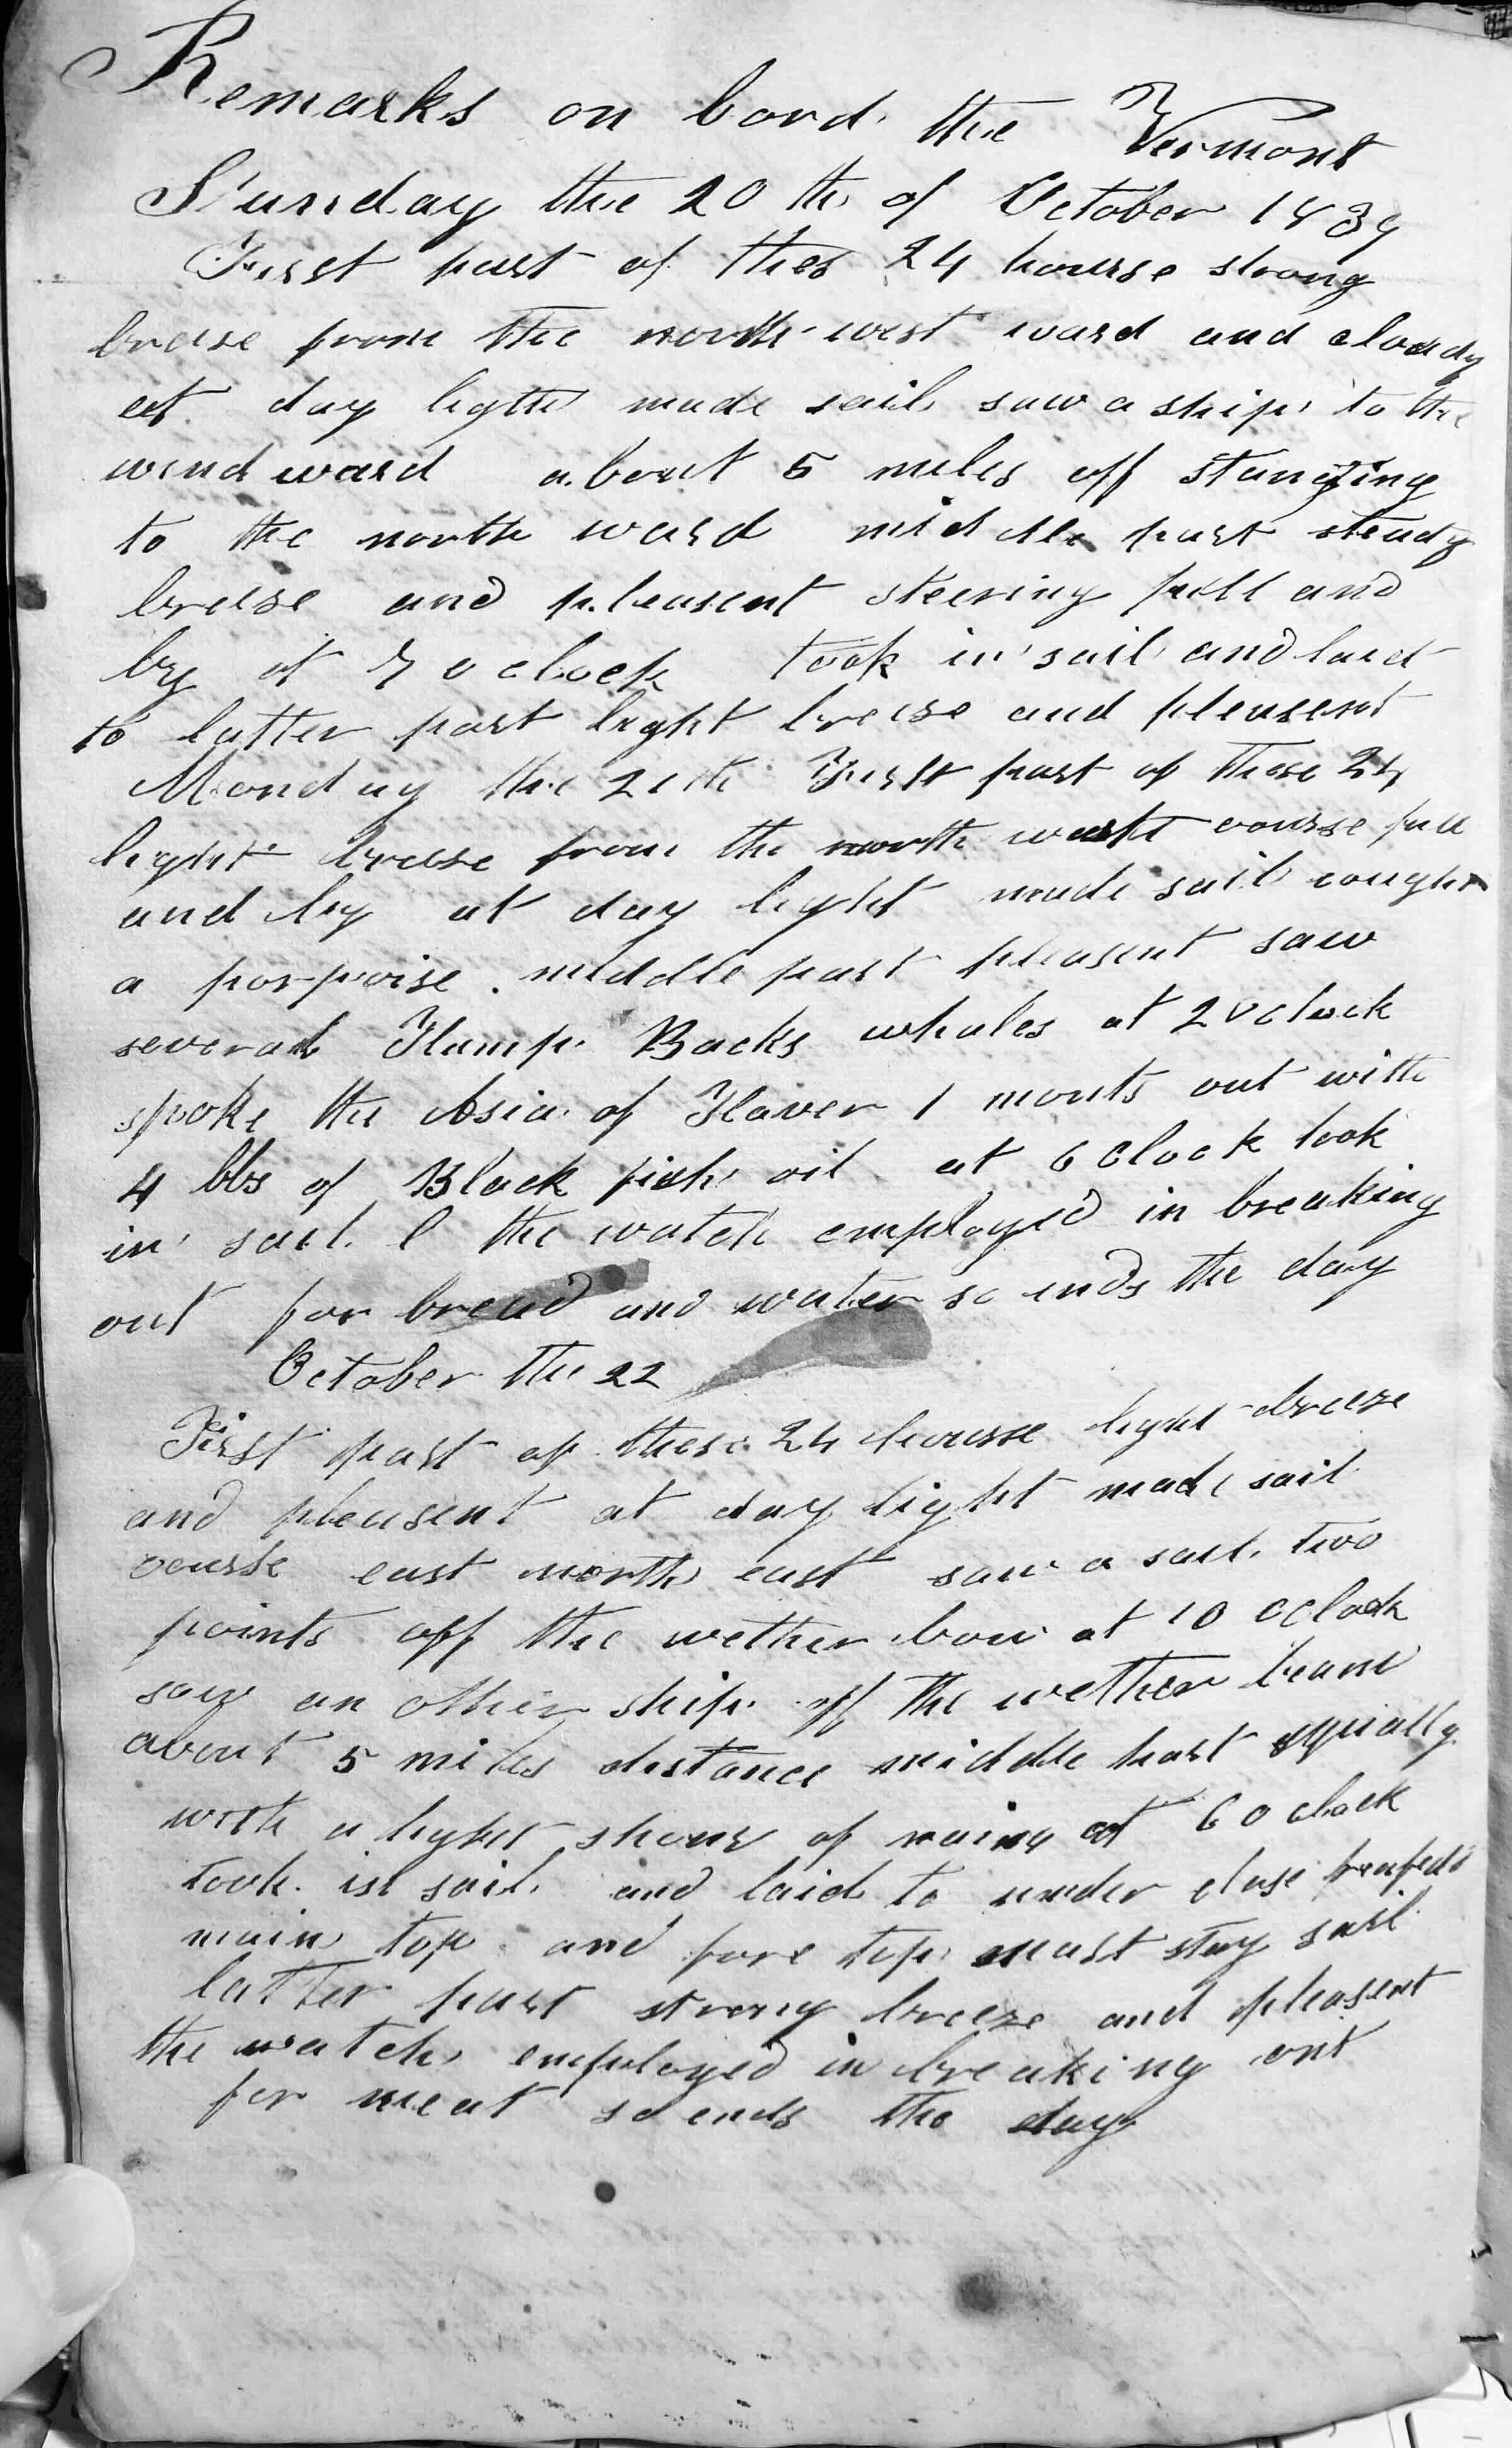 Remarks on bord the Vermont
Sunday the 20 th of October 1839
First part of thes 24 hourse strong
breise from the north west ward and cloudy
at day ligth made sail saw a ship to the
wind ward about 5 miles off standing
to the north ward middle part steady
breise and pleasent steering full and
by at 7 o clock took in sail and laid
to latter part light breise and pleasent
Monday the 21th First part of these 24
light breise from the north west course full
and by at day light made sail cought
a porpoise . middle part pleasent saw
several Hump Backs whales at 2 oclock
spoke the Asia of Haver 1 monts out with
4 bbs of Black fish oil at 6 Oclock took
in sail the watch employed in breaking
out for bread and water so ends the day
October the 22
First part of these 24 hourse light breeze
and pleasent at day light made sail
course east north east saw a sail two
points off the wether bow at 10 oclock
saw an other ship off the wether beam
about 5 miles distance middle part squally
with a light shour of raing at 6 o clock
took in sail and laid to under close reafed
main top and fore top mast stay sail
latter part strong breeze and pleasent
the watch employed in breaking out
for meat so ends the day